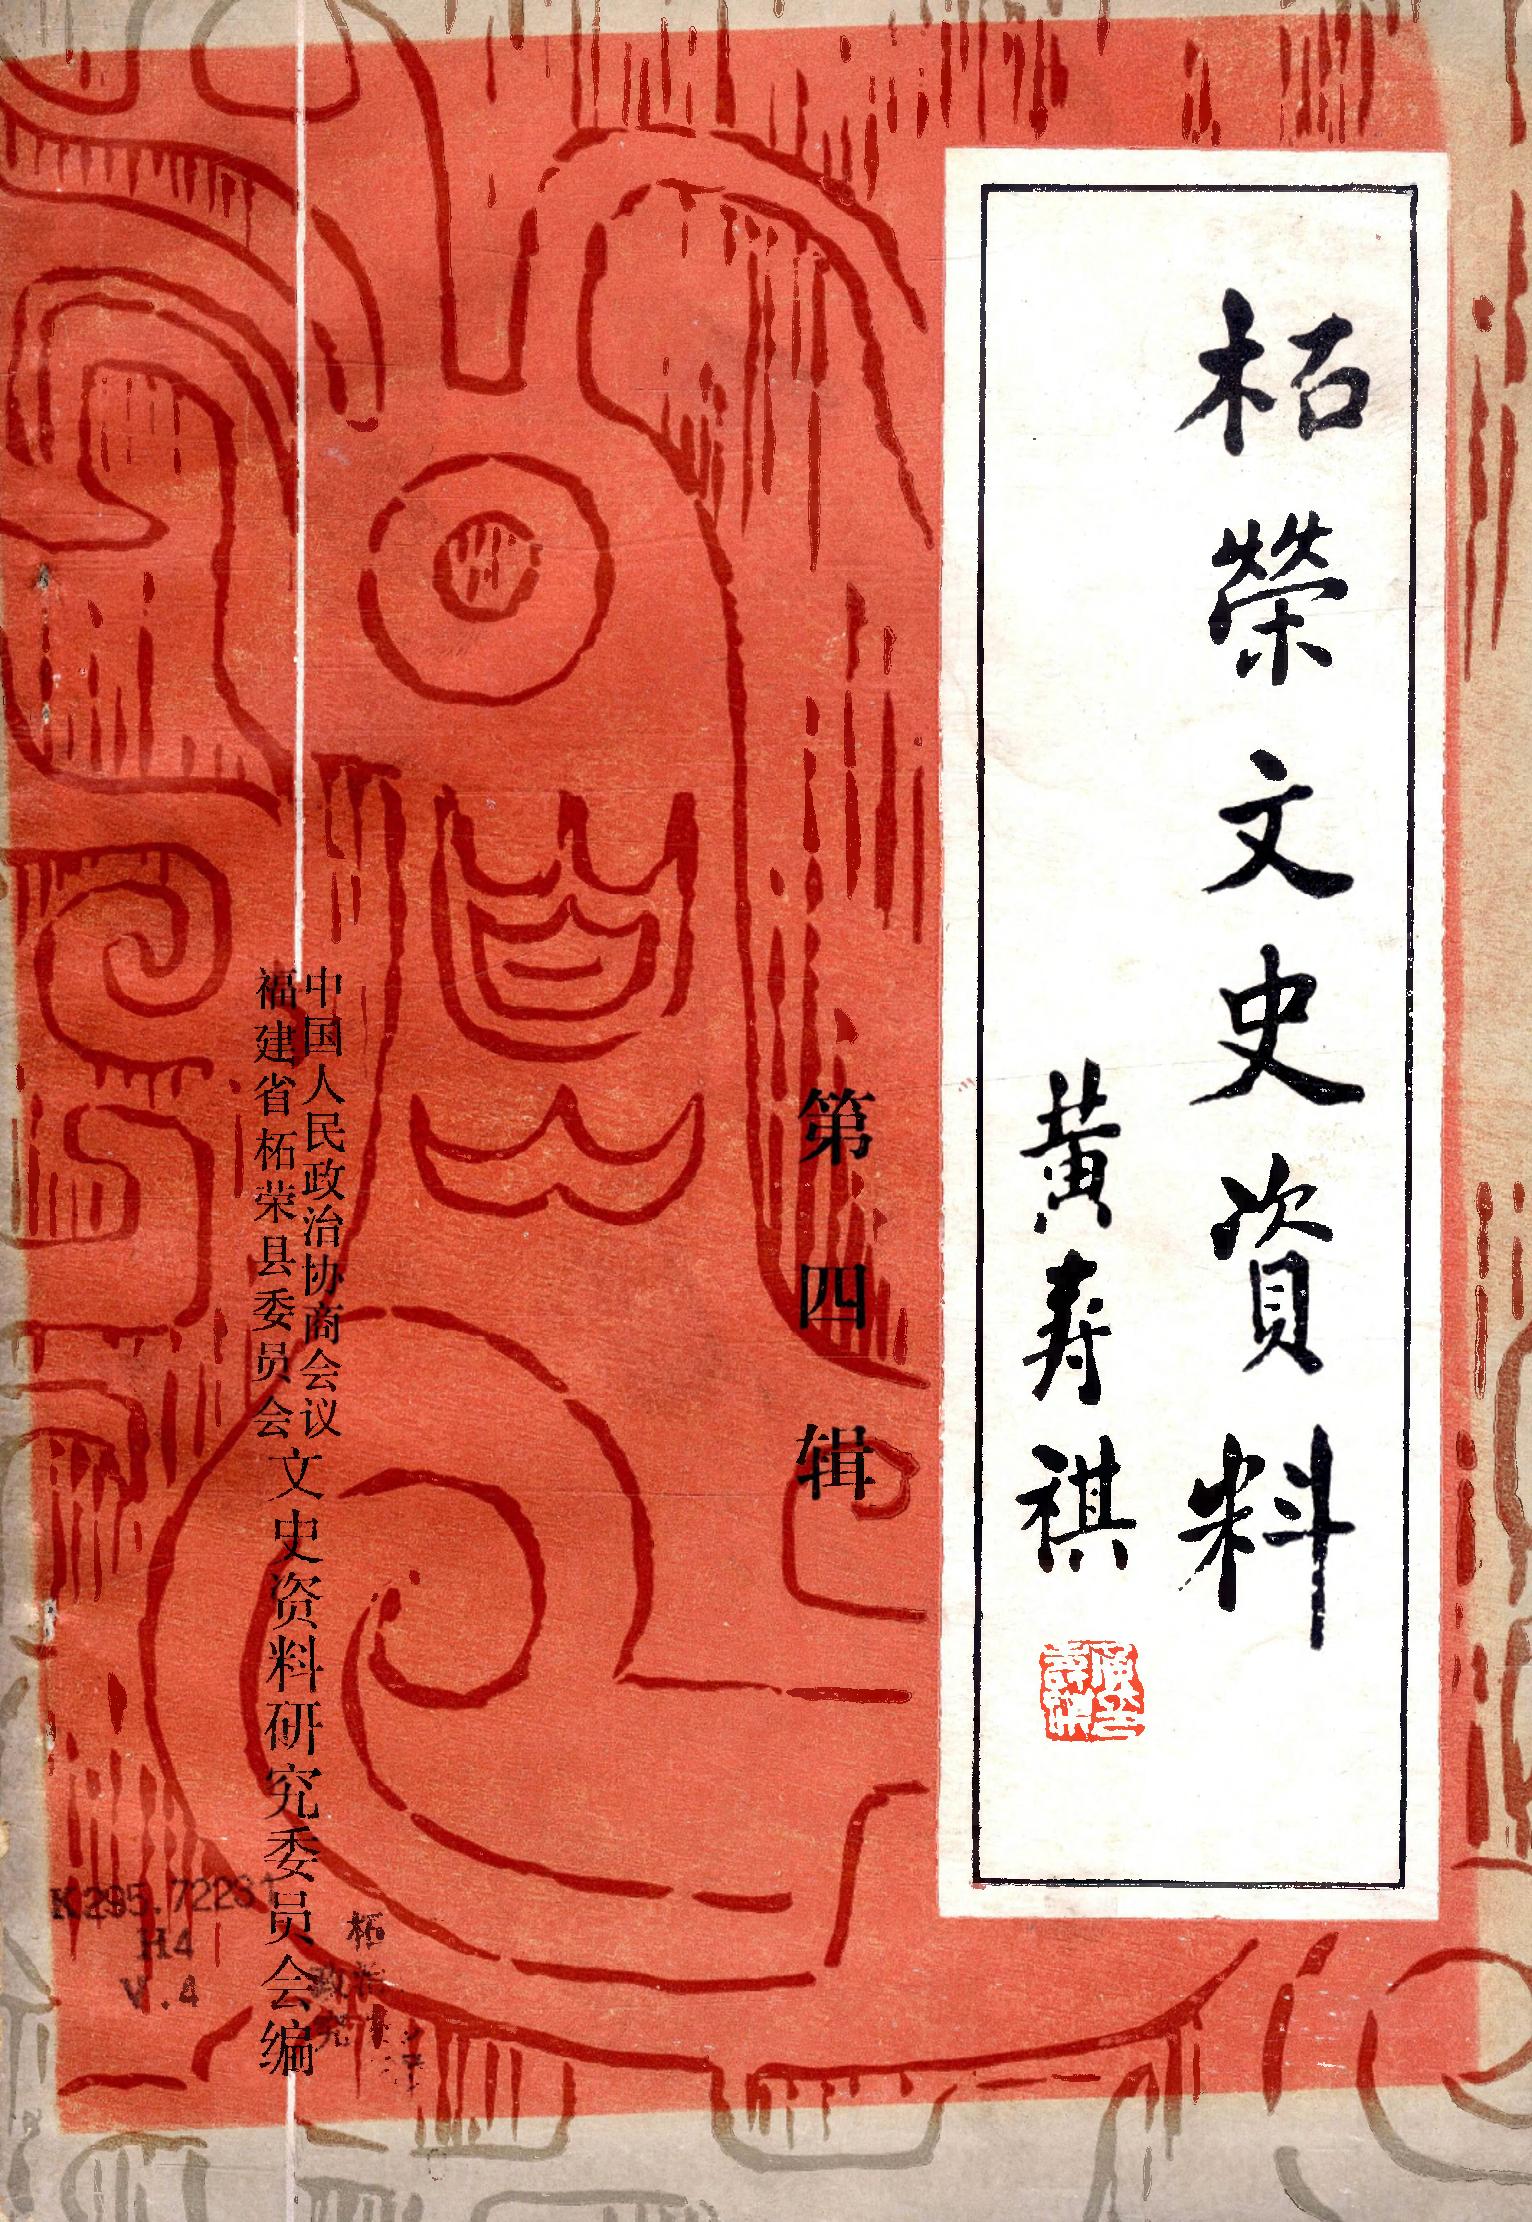 柘榮文史資料
黄寿祺
第四辑
中国人民政治协商会议
福建省柘荣县委员会
文史资料研究委员会编
K295.72281
H4
V.4